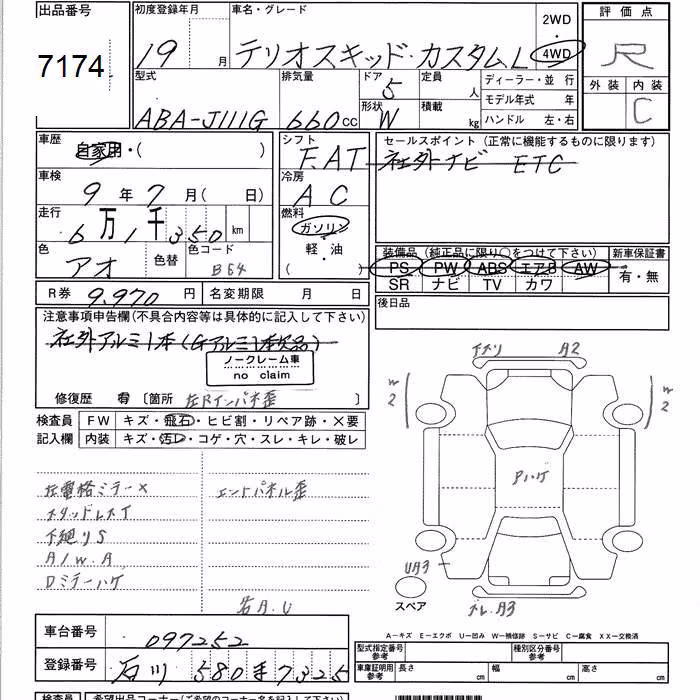 出品番号 初度登録年月 車名・グレード 2WD 評価点
7174 19 月 テリオスキッド・カスタムL 4WD R
型式 排気量 ドア 5 定員 人 ディーラー・並行 外装 内装
モデル年式 年 C
ABA-J111G 660cc 形状 W 積載 kg ハンドル 左・右
車歴 シフト セールスポイント (正常に機能するものに限ります)
自家用・( ) F.AT 社外ナビ ETC
車検 冷房
9年7月( 日) AC
走行 燃料
6万1千350km ガソリン
色 色替 色コード 軽・油 装備品 (純正品に限り○をつけて下さい) 新車保証書
アオ B64 ( ) PS PW ABS エアB AW 有・無
SR ナビ TV カワ
R券 9,970円 名変期限 月 日 後日品
注意事項申告欄(不具合内容等は具体的に記入して下さい)
社外アルミ1本(Gアルミ1本欠品)
ノークレーム車
no claim
修復歴 有 [箇所 左Rインパネ歪 ]
検査員 FW キズ・飛石・ヒビ割・リペア跡・×要
記入欄 内装 キズ・汚レ・コゲ・穴・スレ・キレ・破レ
A2
W2 W2
左電格ミラー× エンドパネル歪
スタッドレスT
下廻りS
A/W.A
Dミラーハゲ
右A.U
Pハゲ
UA3
スペア
A3
A－キズ E－エクボ U－凹み W－補修跡 S－サビ C－腐食 XX－交換済
車台番号 097252 型式指定番号 参考 種別区分番号 参考
登録番号 石川 580 7325 車庫証明用 参考 長さ 幅 高さ
検査員 希望出品コーナー(ご希望のコーナー